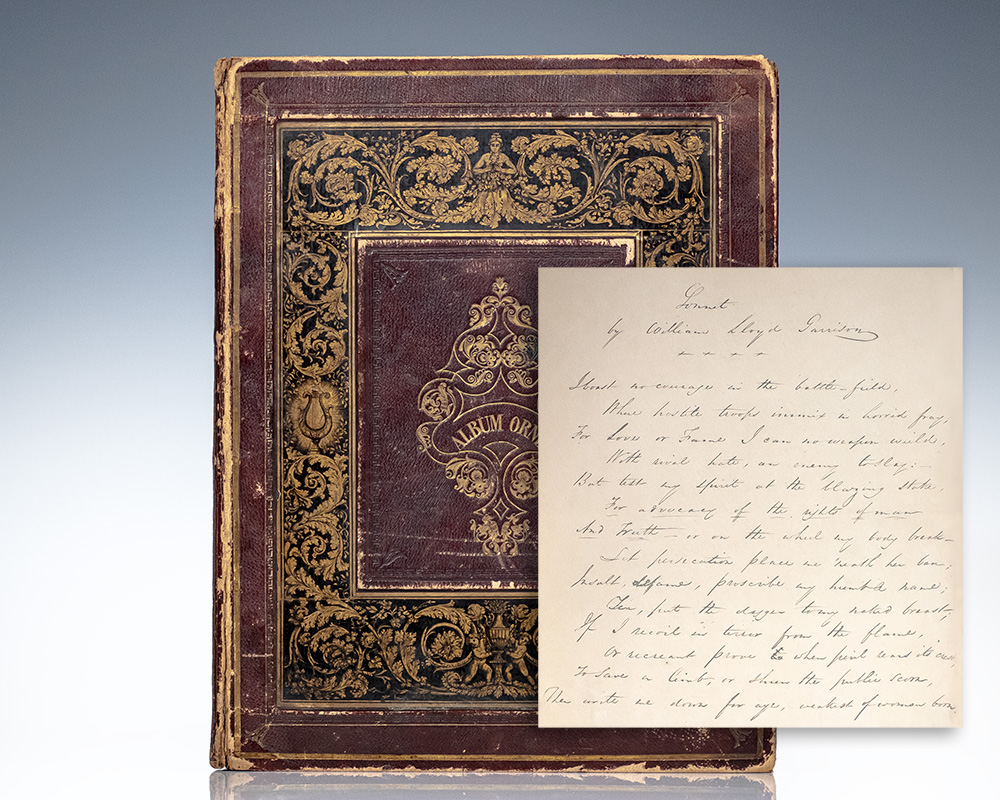 ALBUM ORN
Sonnet
by William Lloyd Garrison
I boast no courage in the battle-field,
Where hostile troops immix in horrid fray,
For Love or Fame I can no weapon wield,
With rival hate, an enemy to slay:—
But test my spirit at the blazing stake,
For advocacy of the rights of man
And Truth — or on the wheel my body break—
Let persecution place me 'neath her ban;
Insult, defame, proscribe my humble name;
Yea, put the dagger to my naked breast;
If I recoil in terror from the flame,
Or recreant prove when peril rears its crest,
To save a limb, or shun the public scorn,
Then write me down for aye, weakest of women born.